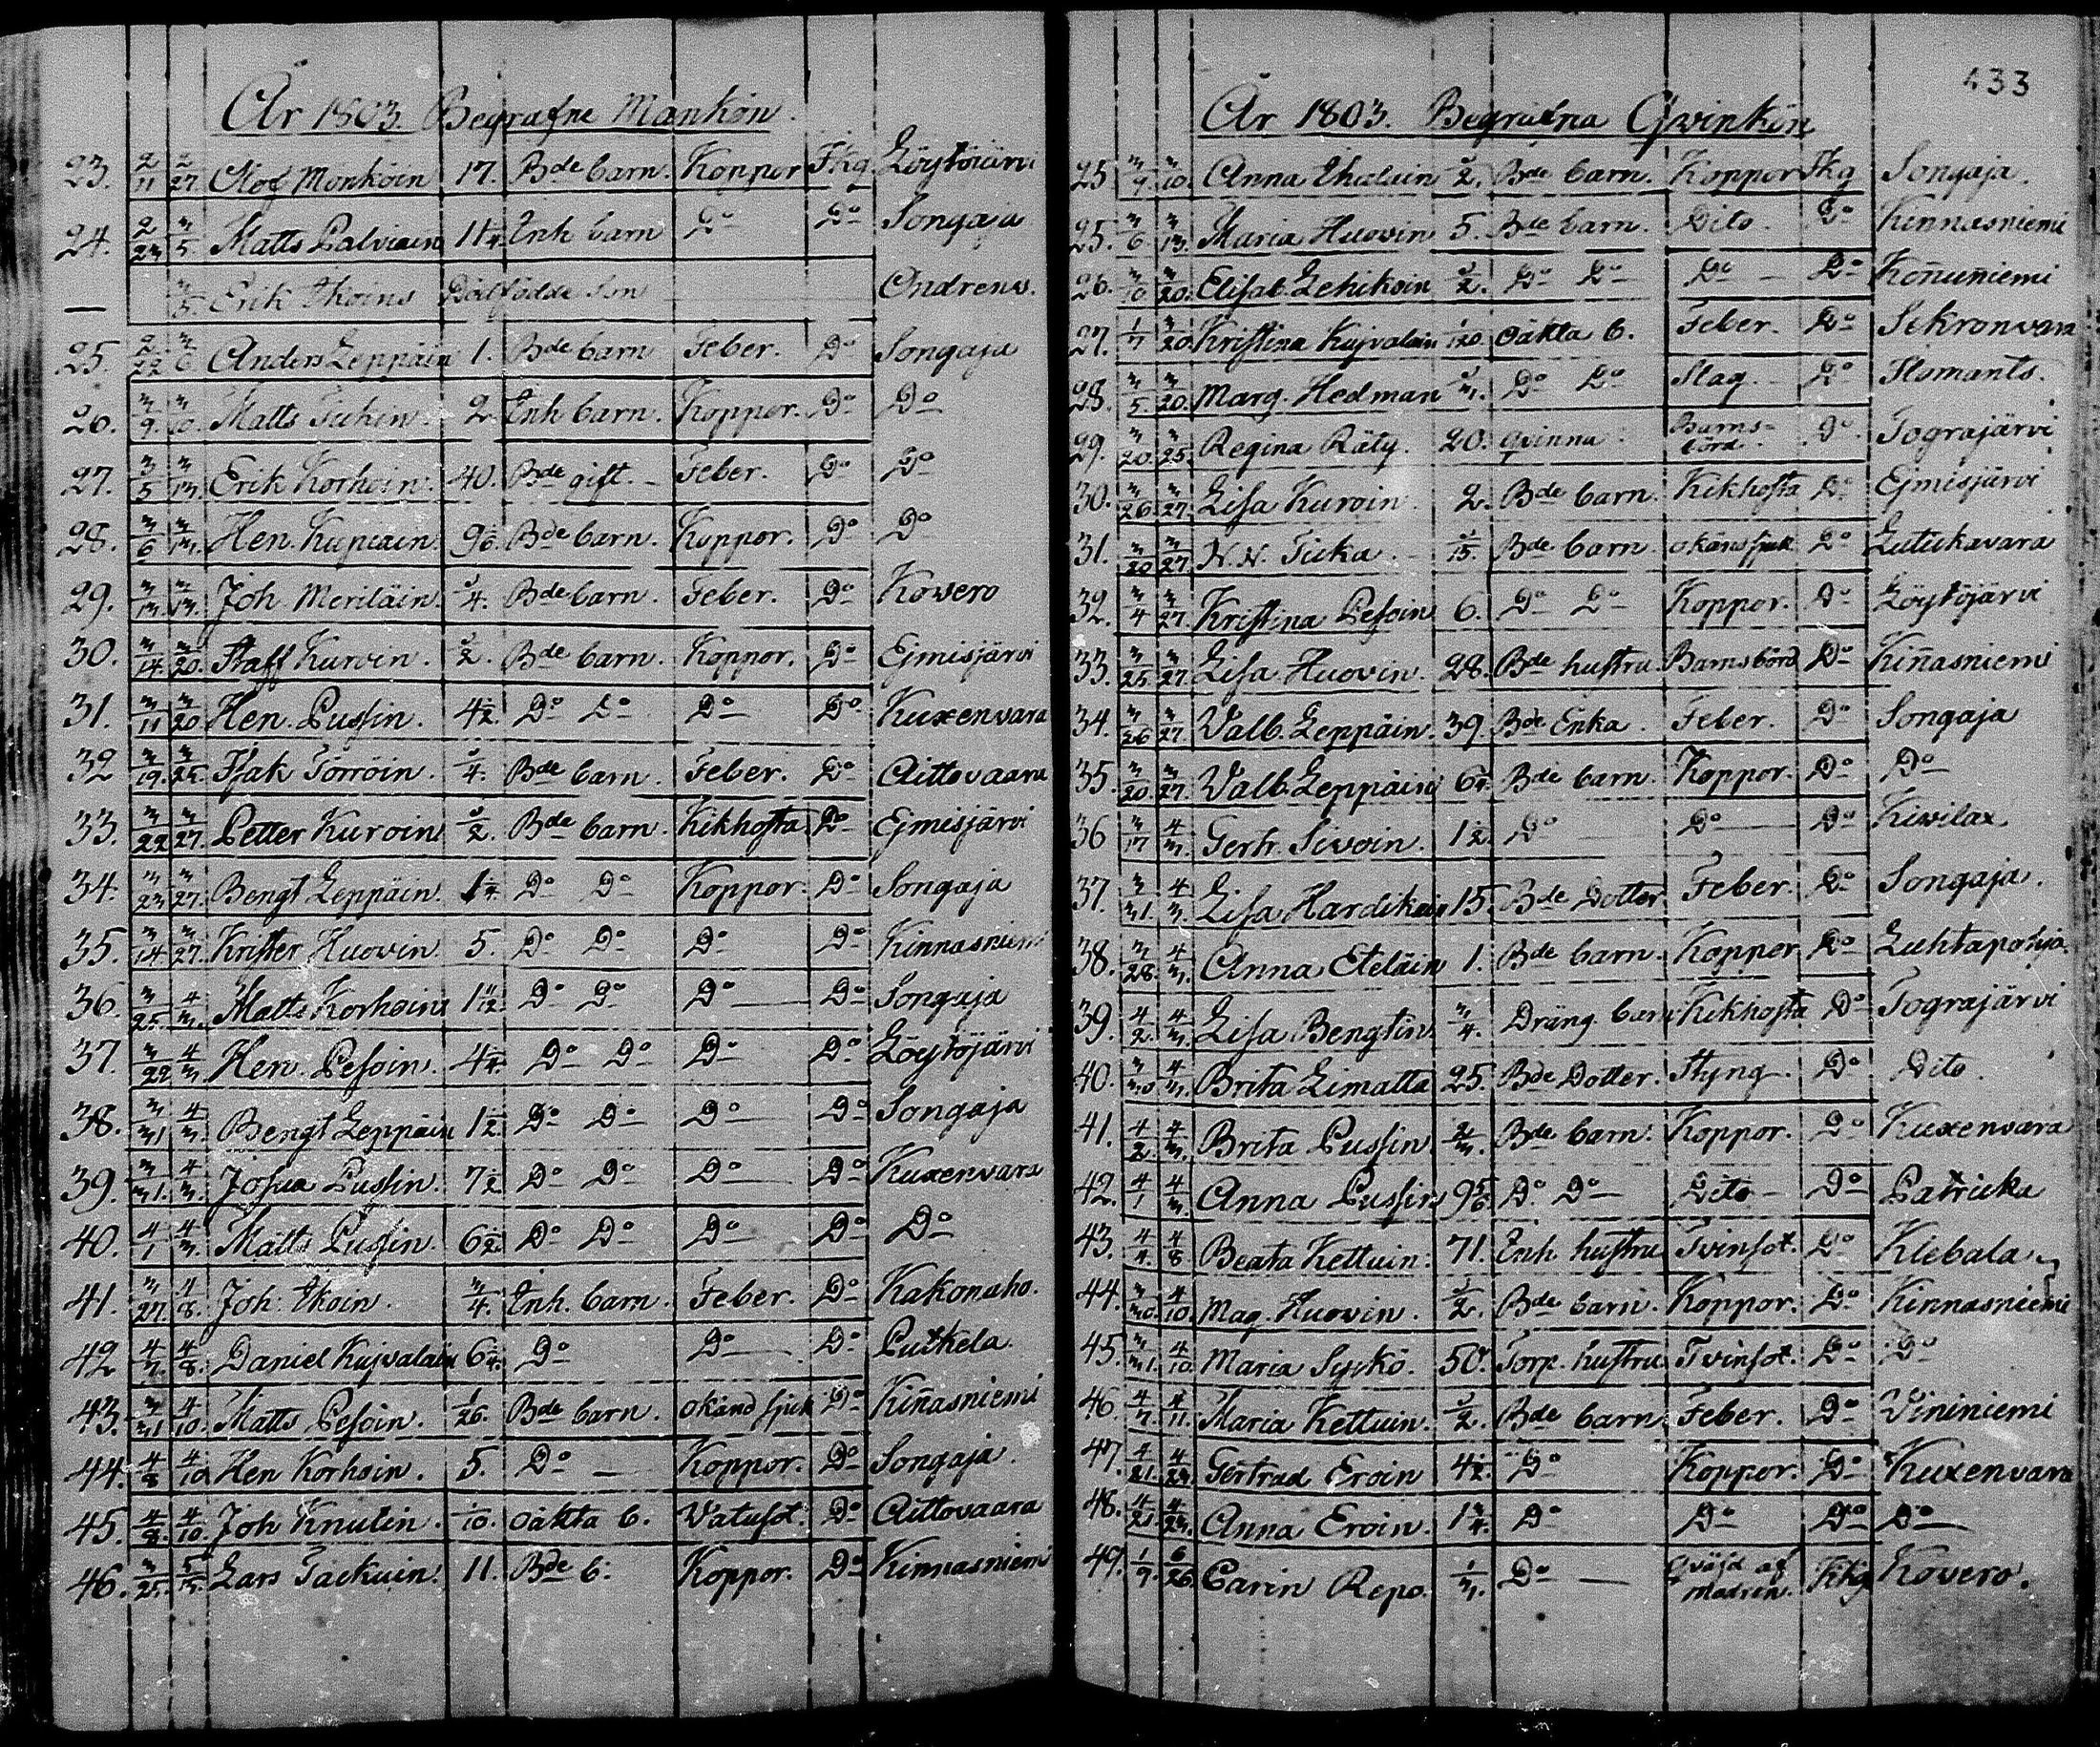 År 1803. Begrafne Mankön.
23. 2/11 2/27. Olof Monköin 17. Bde barn. Koppor Fkg. Löytöiärvi
24. 2/23 3/5 Matts Palviain 11 Enh barn Do Do Songaja
— 3/5. Erik Ikoins Dödfödde Son Ondrens.
25. 2/22 3/6 Anders Leppäin 1. Bde barn Feber. Do Songaja
26. 3/9. 3/10. Matts 2 Enh barn. Koppor. Do Do
27. 3/5 3/13. Erik Korhoin. 40. Bde gift. - Feber. Do Do
28. 3/6 3/13. Hen. Kupiain. 9 Bde barn. Koppor. Do Do
29. 3/13. 3/13. Joh. Meriläin. 3/4. Bde barn. Feber. Do Kowero
30. 3/14. 3/20. Staff Kurvin. 1/2. Bde barn. Koppor. Do Ejmisjärvi
31. 3/11 3/20 Hen. Pussin. 4 1/2. Do Do Do Do Kuxenvara
32 3/19. 3/25. Isak Törröin. 3/4. Bde barn. Feber. Do Aittovaara
33. 3/22 3/27. Petter Kuroin 1/2. Bde barn. Kikhosta Do Ejmisjärvi
34. 3/23 3/27. Bengt Leppäin. 1 1/4. Do Do Koppor. Do Songaja
35. 3/14 3/27. Krister Huovin. 5. Do Do Do Do Kinnasniemi
36. 3/25 4/3. Matts Korhoin 1 1/2 Do Do Do Do Songaja
37. 3/22 4/3 Hen. Pesoin. 4 1/4. Do Do Do Do Löytöjärvi
38. 3/31 4/3. Bengt Leppäin 1 1/2 Do Do Do Do Songaja
39. 3/31. 4/3. Josua Pussin. 7 1/2 Do Do Do Do Kuxenvara
40. 4/1 4/3. Matts Pussin. 6 1/2 Do Do Do Do Do
41. 3/27. 4/8. Joh. Ikoin. 3/4. Enh. barn. Feber. Do Kakonaho.
42 4/3. 4/8. Daniel Kujvalain 6 1/4. Do Do Do Putkela
43. 3/31 4/10. Matts Pesoin. 1/26. Bde barn. okänd sjuk Do Kiñasniemi
44. 4/8 4/10 Hen Korhoin. 5. Do — Koppor. Do Songaja.
45. 4/8. 4/10. Joh Knutin. 1/10. oäkta b. Vatusot. Do Aittovaara
46. 3/25. 5/15. Lars Tackuin. 11. Bde b. Koppor. Do Kinnasniemi
433
År 1803. Begrafna Qvinkön
25 3/9. 3/10. Anna 1/2. Bde barn. Koppor Fkg Songaja.
25. 3/6 3/13. Maria Huovin 5. Bde barn. Dito. Do Kinnasniemi
26. 3/10 3/20. Elisab. Lehikoin 1/2. Do Do Do — Do Koñuniemi
27. 1/7 3/20 Kristina Kujvalain 1/20. oäkta b. Feber. Do Sikronvara
28. 3/5. 3/20. Marg. Hedman Do Do Slag. - Do Ilomants.
29. 3/20. 3/25. Regina Räty. 20. qvinna Barnsbörd. Do Tograjärvi
30. 3/26. 3/27. Lisa Kuroin. 2. Bde barn. Kikhosta Do Ejmisjärvi
31. 3/20 3/27. N. N. Ticka. 1/15. Bde barn. okänsjuk Do Lutickavara
32. 3/4 3/27. Kristina Pesoin 6. Do Do Koppor. Do Löytöjärvi
33. 3/25. 3/27. Lisa Huovin. 28. Bde hustru. Barnsbörd Do Kiñasniemi
34. 3/26 3/27. Valb. Leppäin. 39. Bde Enka. Feber. Do Songaja
35. 3/20. 3/27. Valb. Leppäin 6 3/4. Bde barn. Koppor. Do Do
36 3/17 4/3. Gertr. Sivoin. 1 1/2. Do Do Do Kivilax
37. 3/31. 4/3. Lisa Hardikain 15. Bde Dotter Feber. Do Songaja.
38. 3/28. 4/3. Anna Eteläin 1. Bde barn. Koppor Do Luhtapohja
39. 4/2. 4/3. Lisa Bengtin. 3/4. Dräng. barn Kikhosta Do Tograjärvi
40. 3/30 4/3. Brita Limatta 25. Bde Dotter. Styng. Do Dito.
41. 4/2. 4/3. Brita Pussin. 2/3. Bde barn. Koppor. Do Kuxenvara
42. 4/1 4/3. Anna Pussin 9 5/6. Do Do Dito Do Patricka
43. 4/4. 4/8 Beata Kettuin. 71. Enh. hustru Tvinsot. Do Klebala
44. 3/30. 4/10. Mag. Huovin. 1/2. Bde barn. Koppor. Do Kinnasniemi
45. 3/31. 4/10 Maria Syrkö. 50. Torp. hustru Tvinsot. Do Do
46. 4/7. 4/11. Maria Kettuin. 1/2. Bde barn Feber. Do Vininiemi
47. 4/21. 4/24. Gertrud Eroin 4 1/2. Do Koppor. Do Kuxenvara
48. 4/21 4/24. Anna Eroin. 1 3/4. Do Do Do Do
49. 1/9. 6/26. Carin Repo. Do — qväfd af modren. Kkg Kovero.